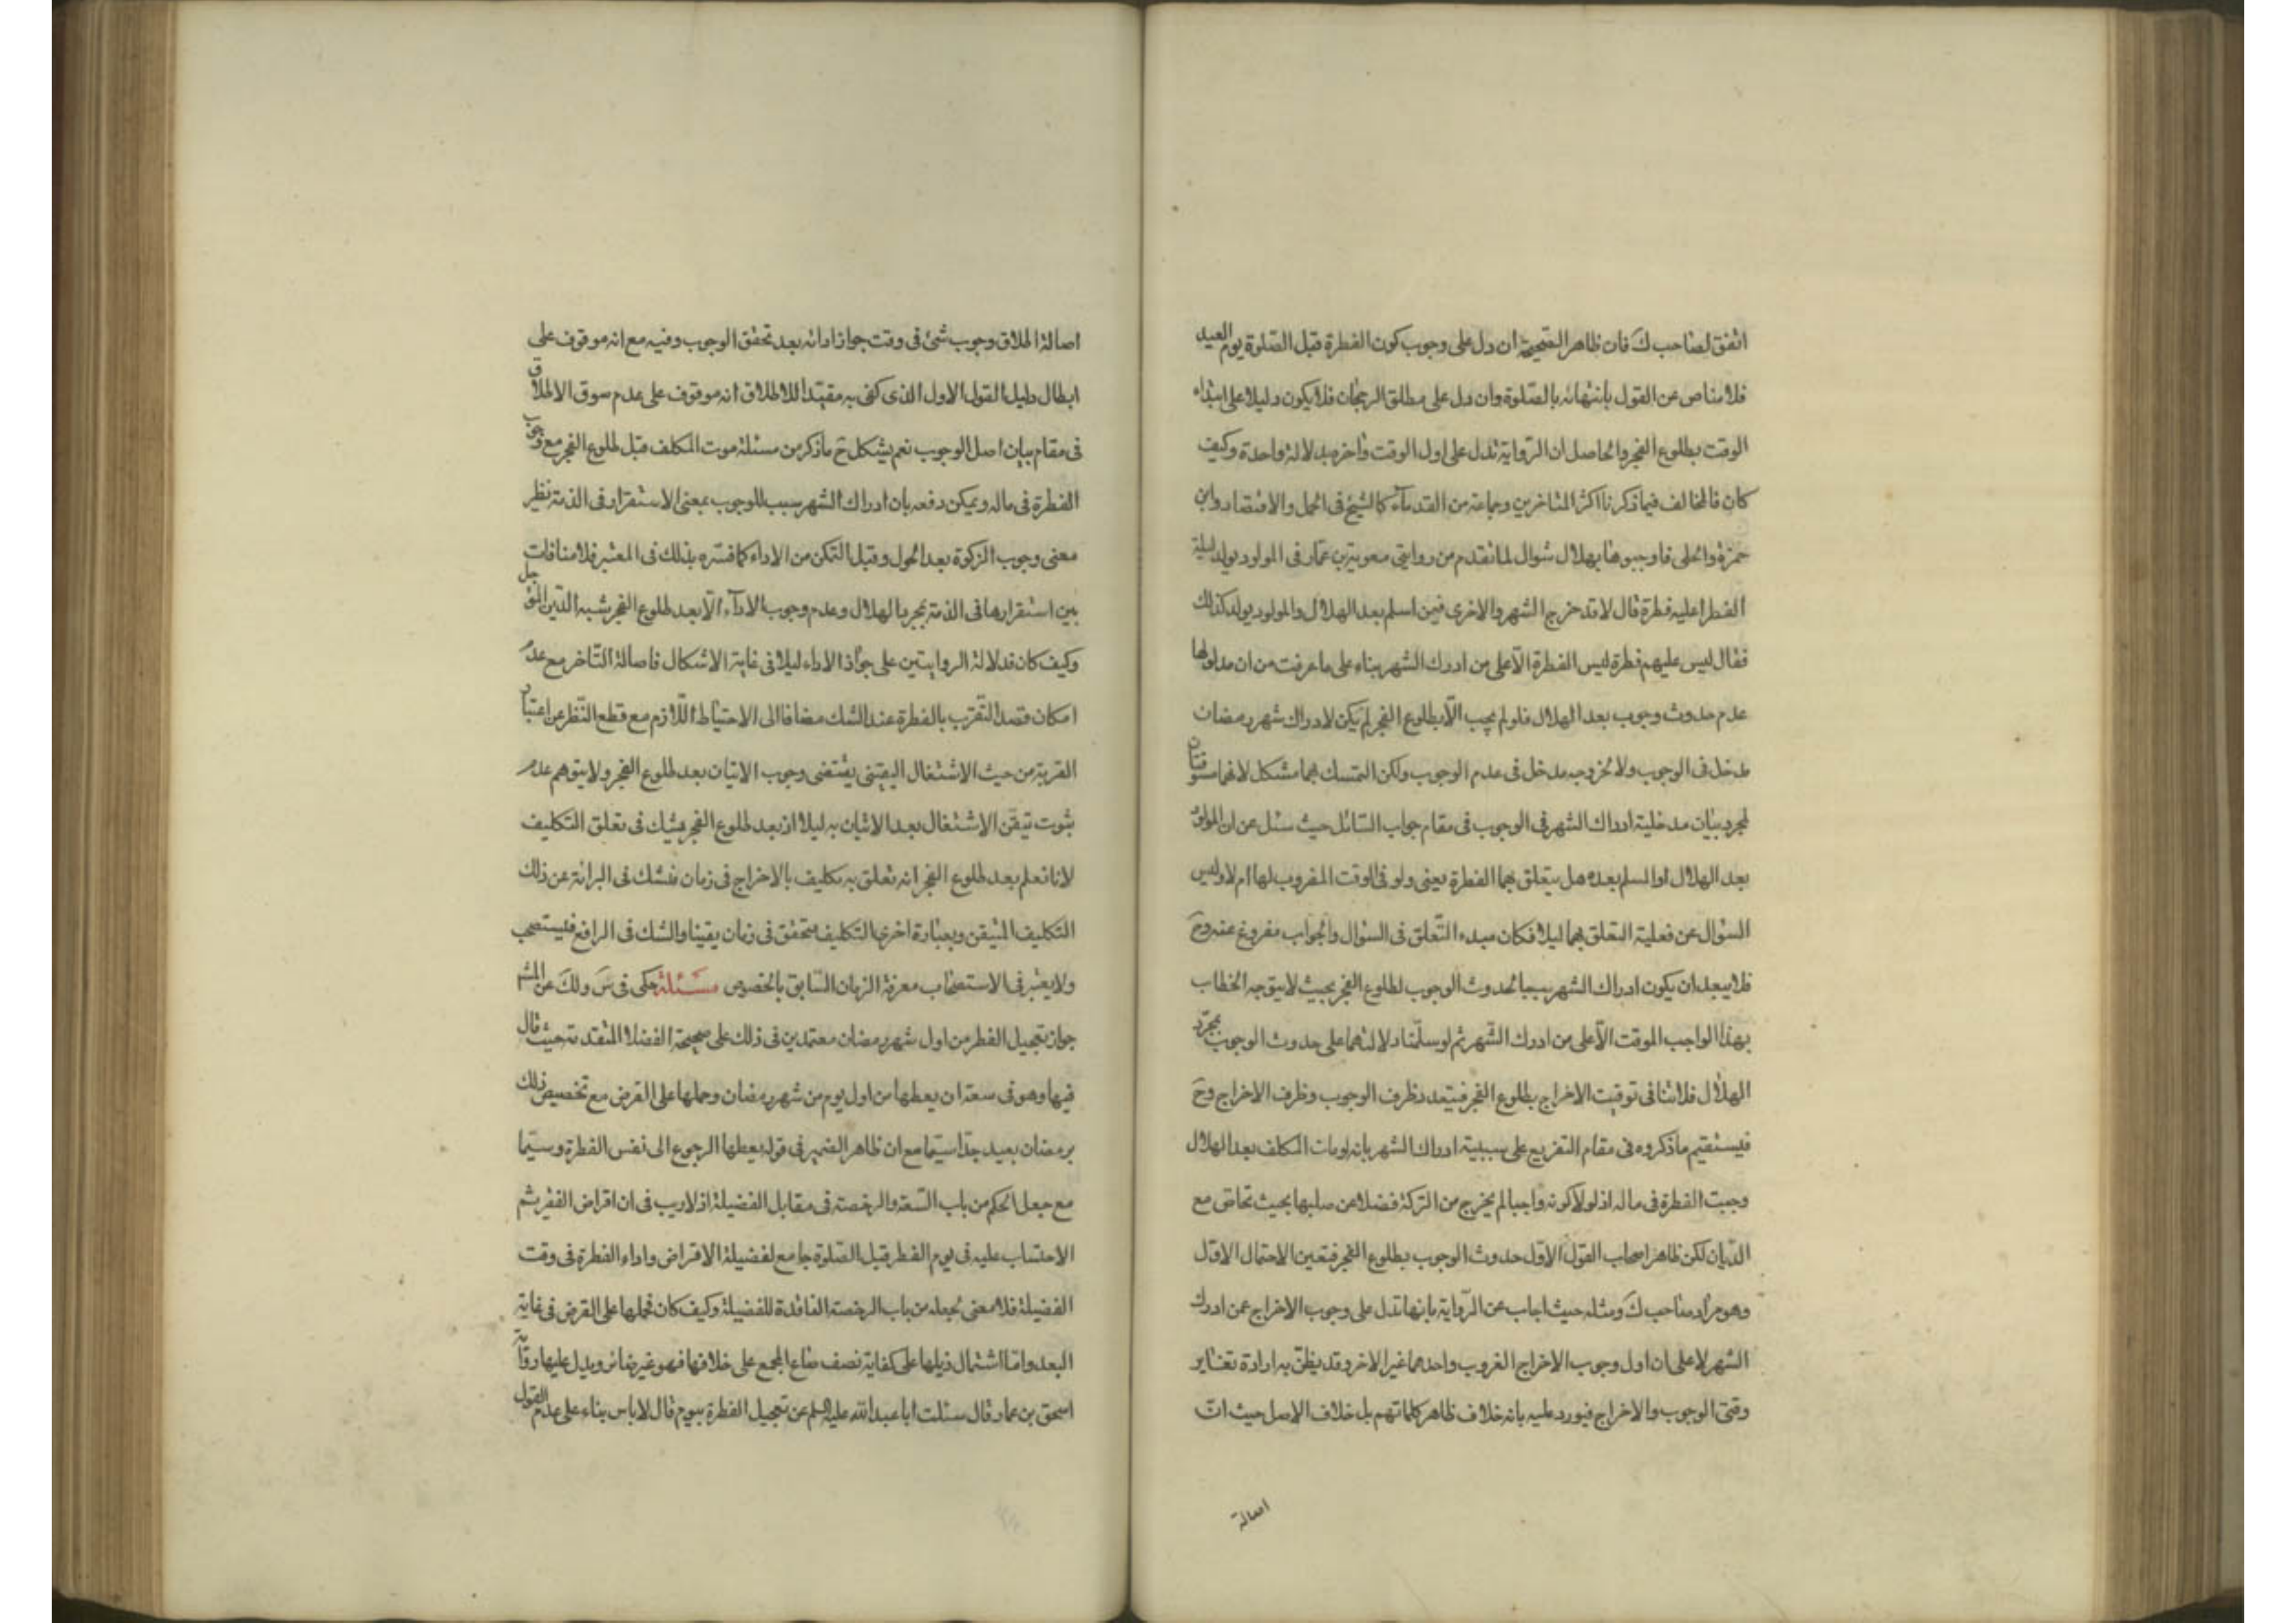 اتفق لصاحب ك فان ظاهر الصحيحة ان دل على وجوب كون الفطرة قبل الصلوة يوم العيد
فلا مناص عن القول بانتهائه بالصلوة وان دل على مطلق الرجحان فلا يكون دليلا على ابتداء
الوقت بطلوع الفجر والحاصل ان الرواية تدل على اول الوقت واخره بدلالة واحدة وكيف
كان فالمخالف فيما ذكرنا اكثر المتاخرين وجماعة من القدماء كالشيخ فى الجمل والاقتصاد وابن
حمزة والحلى فاوجبوها بهلال شوال لما تقدم من روايتى معوية بن عمار فى المولود يولد ليلة
الفطر اعليه فطرة قال لا قد خرج الشهر والاخرى فيمن اسلم بعد الهلال والمولود يولد كذلك
فقال ليس عليهم فطرة ليس الفطرة الا على من ادرك الشهر بناء على ما عرفت من ان مدلولها
عدم حدوث وجوب بعد الهلال فلو لم يجب الا بطلوع الفجر لم يكن لادراك شهر رمضان
مدخل فى الوجوب ولا لخروجه مدخل فى عدم الوجوب ولكن التمسك بهما مشكل لانهما مسوقتان
لمجرد بيان مدخلية ادراك الشهر فى الوجوب فى مقام جواب السائل حيث سئل عن ان المولود
بعد الهلال او المسلم بعده هل يتعلق بهما الفطرة يعنى ولو فى الوقت المضروب لها ام لا وليس
السؤال عن فعلية التعلق بهما ليلا فكان مبدء التعلق فى السؤال والجواب مفروغ عنه وح
فلا يبعد ان يكون ادراك الشهر سببا لحدوث الوجوب لطلوع الفجر بحيث لا يتوجه الخطاب
بهذا الواجب الموقت الا على من ادرك الشهر ثم لو سلمنا دلالتهما على حدوث الوجوب بمجرد
الهلال فلا تنافى توقيت الاخراج بطلوع الفجر فيتعدد ظرف الوجوب وظرف الاخراج وح
فيستقيم ما ذكروه فى مقام التفريع على سببية ادراك الشهر بانه لو مات المكلف بعد الهلال
وجبت الفطرة فى ماله اذ لولا كونه واجبا لم يخرج من التركة فضلا عن صلبها بحيث تحاص مع
الديان لكن ظاهر اصحاب القول الاول حدوث الوجوب بطلوع الفجر فتعين الاحتمال الاول
وهو مراد صاحب ك ومثله حيث اجاب عن الرواية بانها تدل على وجوب الاخراج عمن ادرك
الشهر لا على ان اول وجوب الاخراج الغروب واحدهما غير الاخر وقد يظن به ارادة تغاير
وقتى الوجوب والاخراج فيورد عليه بانه خلاف ظاهر كلماتهم بل خلاف الاصل حيث ان
اصالة
اصالة اطلاق وجوب شئ فى وقت جواز ادائه بعد تحقق الوجوب وفيه مع انه موقوف على
ابطال دليل القول الاول الذى كفى به مقيدا للاطلاق انه موقوف على عدم سوق الاطلاق
فى مقام بيان اصل الوجوب نعم يشكل ح ما ذكر من مسئلة موت المكلف قبل طلوع الفجر مع وجوب
الفطرة فى ماله ويمكن دفعه بان ادراك الشهر سبب للوجوب بمعنى الاستقرار فى الذمة نظير
معنى وجوب الزكوة بعد الحول وقبل التمكن من الاداء كما فسره بذلك فى المعتبر فلا منافات
بين استقرارها فى الذمة بمجرد الهلال وعدم وجوب الاداء الا بعد طلوع الفجر شبه الدين المؤجل
وكيف كان فدلالة الروايتين على جواز الاداء ليلا فى غاية الاشكال فاصالة التاخر مع عدم
امكان قصد التقرب بالفطرة عند الشك مضافا الى الاحتياط اللازم مع قطع النظر عن اعتبار
القربة من حيث الاشتغال اليقينى يقتضى وجوب الاتيان بعد طلوع الفجر ولا يتوهم عدم
ثبوت تيقن الاشتغال بعد الاتيان به ليلا اذ بعد طلوع الفجر يشك فى تعلق التكليف
لانا نعلم بعد طلوع الفجر انه تعلق به تكليف بالاخراج فى زمان فنشك فى البرائة عن ذلك
التكليف المتيقن وبعبارة اخرى التكليف متحقق فى زمان يقينا والشك فى الرافع فليستصحب
ولا يعتبر فى الاستصحاب معرفة الزمان السابق بالخصوص مسئلة حكى فى س ولك عن المشه
جواز تعجيل الفطر من اول شهر رمضان معتمدين فى ذلك على صحيحة الفضلا المتقدمة حيث قال
فيها وهو فى سعة ان يعطها من اول يوم من شهر رمضان وحملها على القرض مع تخصيص ذلك
برمضان بعيد جدا سيما مع ان ظاهر الضمير فى قوله يعطها الرجوع الى نفس الفطرة وسيما
مع جعل الحكم من باب السعة والرخصة فى مقابل الفضيلة اذ لا ريب فى ان اقراض الفقير ثم
الاحتساب عليه فى يوم الفطر قبل الصلوة جامع لفضيلة الاقراض واداء الفطرة فى وقت
الفضيلة فلا معنى لجعله من باب الرخصة الفاقدة للفضيلة وكيف كان فحملها على القرض فى غاية
البعد واما اشتمال ذيلها على كفاية نصف صاع المجمع على خلافها فهو غير ضائر ويدل عليها رواية
اسحق بن عمار قال سئلت ابا عبد الله عليه السلم عن تعجيل الفطرة بيوم قال لا باس بناء على عدم القول